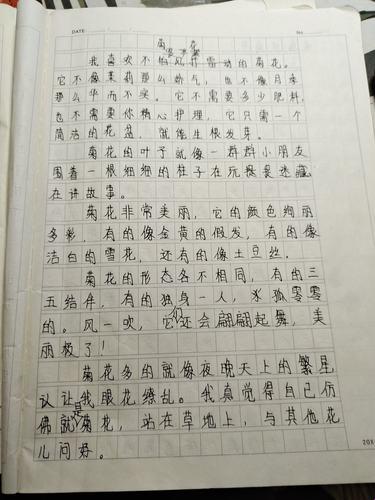 DATE
No
菊花
我喜欢不怕风吹雷动的菊花。
它不像茉莉那么娇气，也不像月季
那么华而不实。它不需要多少肥料，
也不需要你精心护理，它只需一个
简洁的花盆，就能生根发芽。
菊花的叶子就像一群群小朋友
围着一根细细的柱子在玩捉迷藏，
在讲故事。
菊花非常美丽，它的颜色绚丽
多彩，有的像金黄的假发，有的像
洁白的雪花，还有的像土豆丝。
菊花的形态各不相同，有的三
五结伴，有的独身一人，孤零零
的。风一吹，它们还会翩翩起舞，美
丽极了！
菊花多的就像夜晚天上的繁星
认让我眼花缭乱。我真觉得自己仿
佛就是菊花，站在草地上，与其他花
儿问好。